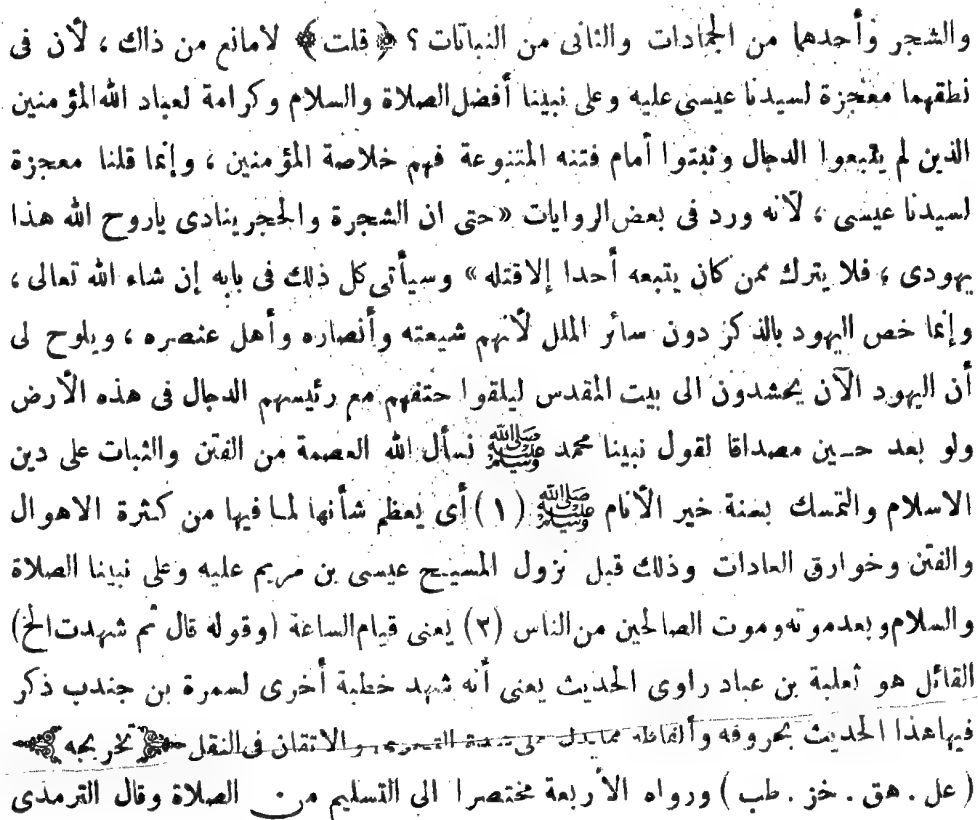 والشجر وأحدهما من الجمادات والثانى من النباتات ؟ ﴿ قلت ﴾ لامانع من ذاك ، لأن فى
نطقهما معجزة لسيدنا عيسى عليه وعلى نبينا أفضل الصلاة والسلام وكرامة لعباد الله المؤمنين
الذين لم يتبعوا الدجال وثبتوا أمام فتنه المتنوعة فهم خلاصة المؤمنين ، وإنما قلنا معجزة
لسيدنا عيسى ، لأنه ورد فى بعض الروايات «حتى ان الشجرة والحجر ينادى ياروح الله هذا
يهودى ، فلا يترك ممن كان يتبعه أحدا إلا قتله» وسيأتى كل ذلك فى بابه إن شاء الله تعالى ،
وإنما خص اليهود بالذكر دون سائر الملل لأنهم شيعته وأنصاره وأهل عنصره ، ويلوح لى
أن اليهود الآن يحشدون الى بيت المقدس ليلقوا حتفهم مع رئيسهم الدجال فى هذه الأرض
ولو بعد حين مصداقا لقول نبينا محمد ﷺ نسأل الله العصمة من الفتن والثبات على دين
الاسلام والتمسك بسنة خير الأنام ﷺ (١) أى يعظم شأنها لما فيها من كثرة الاهوال
والفتن وخوارق العادات وذلك قبل نزول المسيح عيسى بن مريم عليه وعلى نبينا الصلاة
والسلام وبعد موته وموت الصالحين من الناس (٢) يعنى قيام الساعة (وقوله قال ثم شهدت الخ)
القائل هو ثعلبة بن عباد راوى الحديث يعنى أنه شهد خطبة أخرى لسمرة بن جندب ذكر
فيها هذا الحديث بحروفه وألفاظه مما يدل على شدة التحرى والاتقان فى النقل ﴿ تخريجه ﴾
( عل . هق . خز . طب ) ورواه الأربعة مختصرا الى التسليم من الصلاة وقال الترمذى